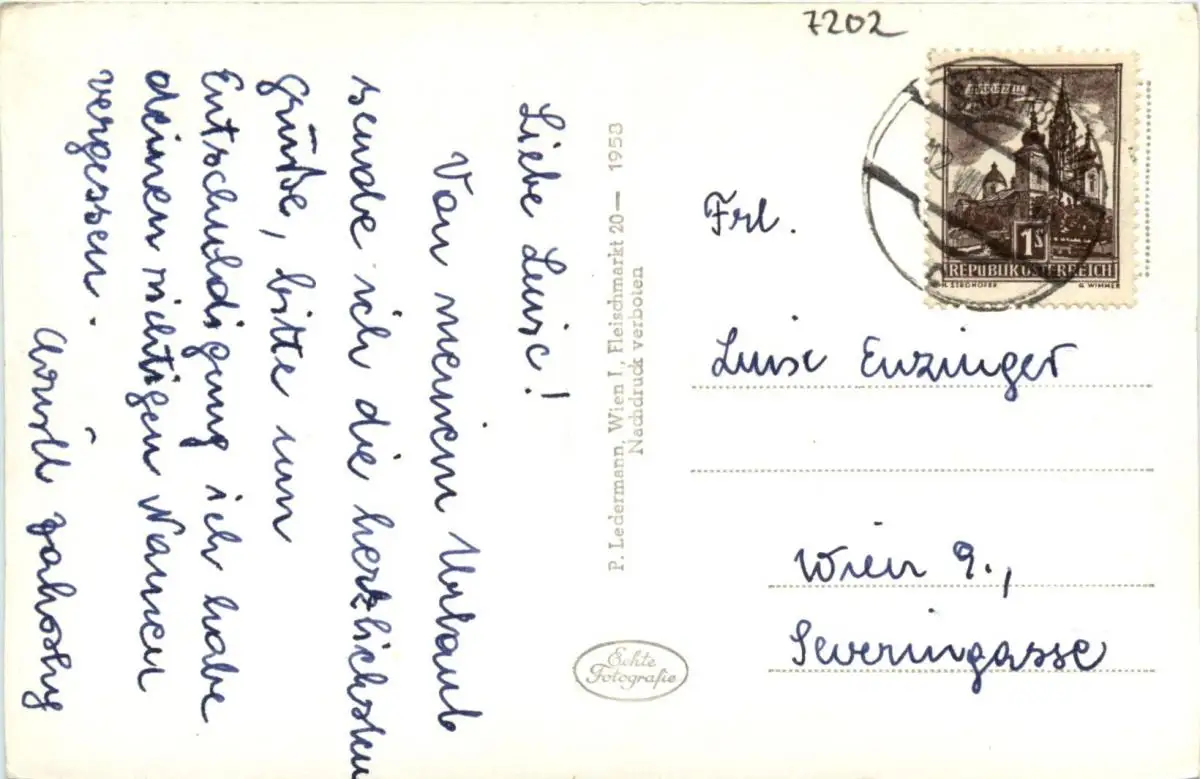 7202
Liebe Luise!
Von meinem Urlaub
sende ich die herzlichsten
Grüße, bitte um
Entschuldigung ich habe
deinen richtigen Namen
vergessen.
P. Ledermann, Wien I, Fleischmarkt 20— 1958
Nachdruck verboten
Echte
Fotografie
1S
REPUBLIK ÖSTERREICH
H. STROHOFER G. WIMMER
Frl.
Luise Enzinger
Wien 9.,
Severingasse